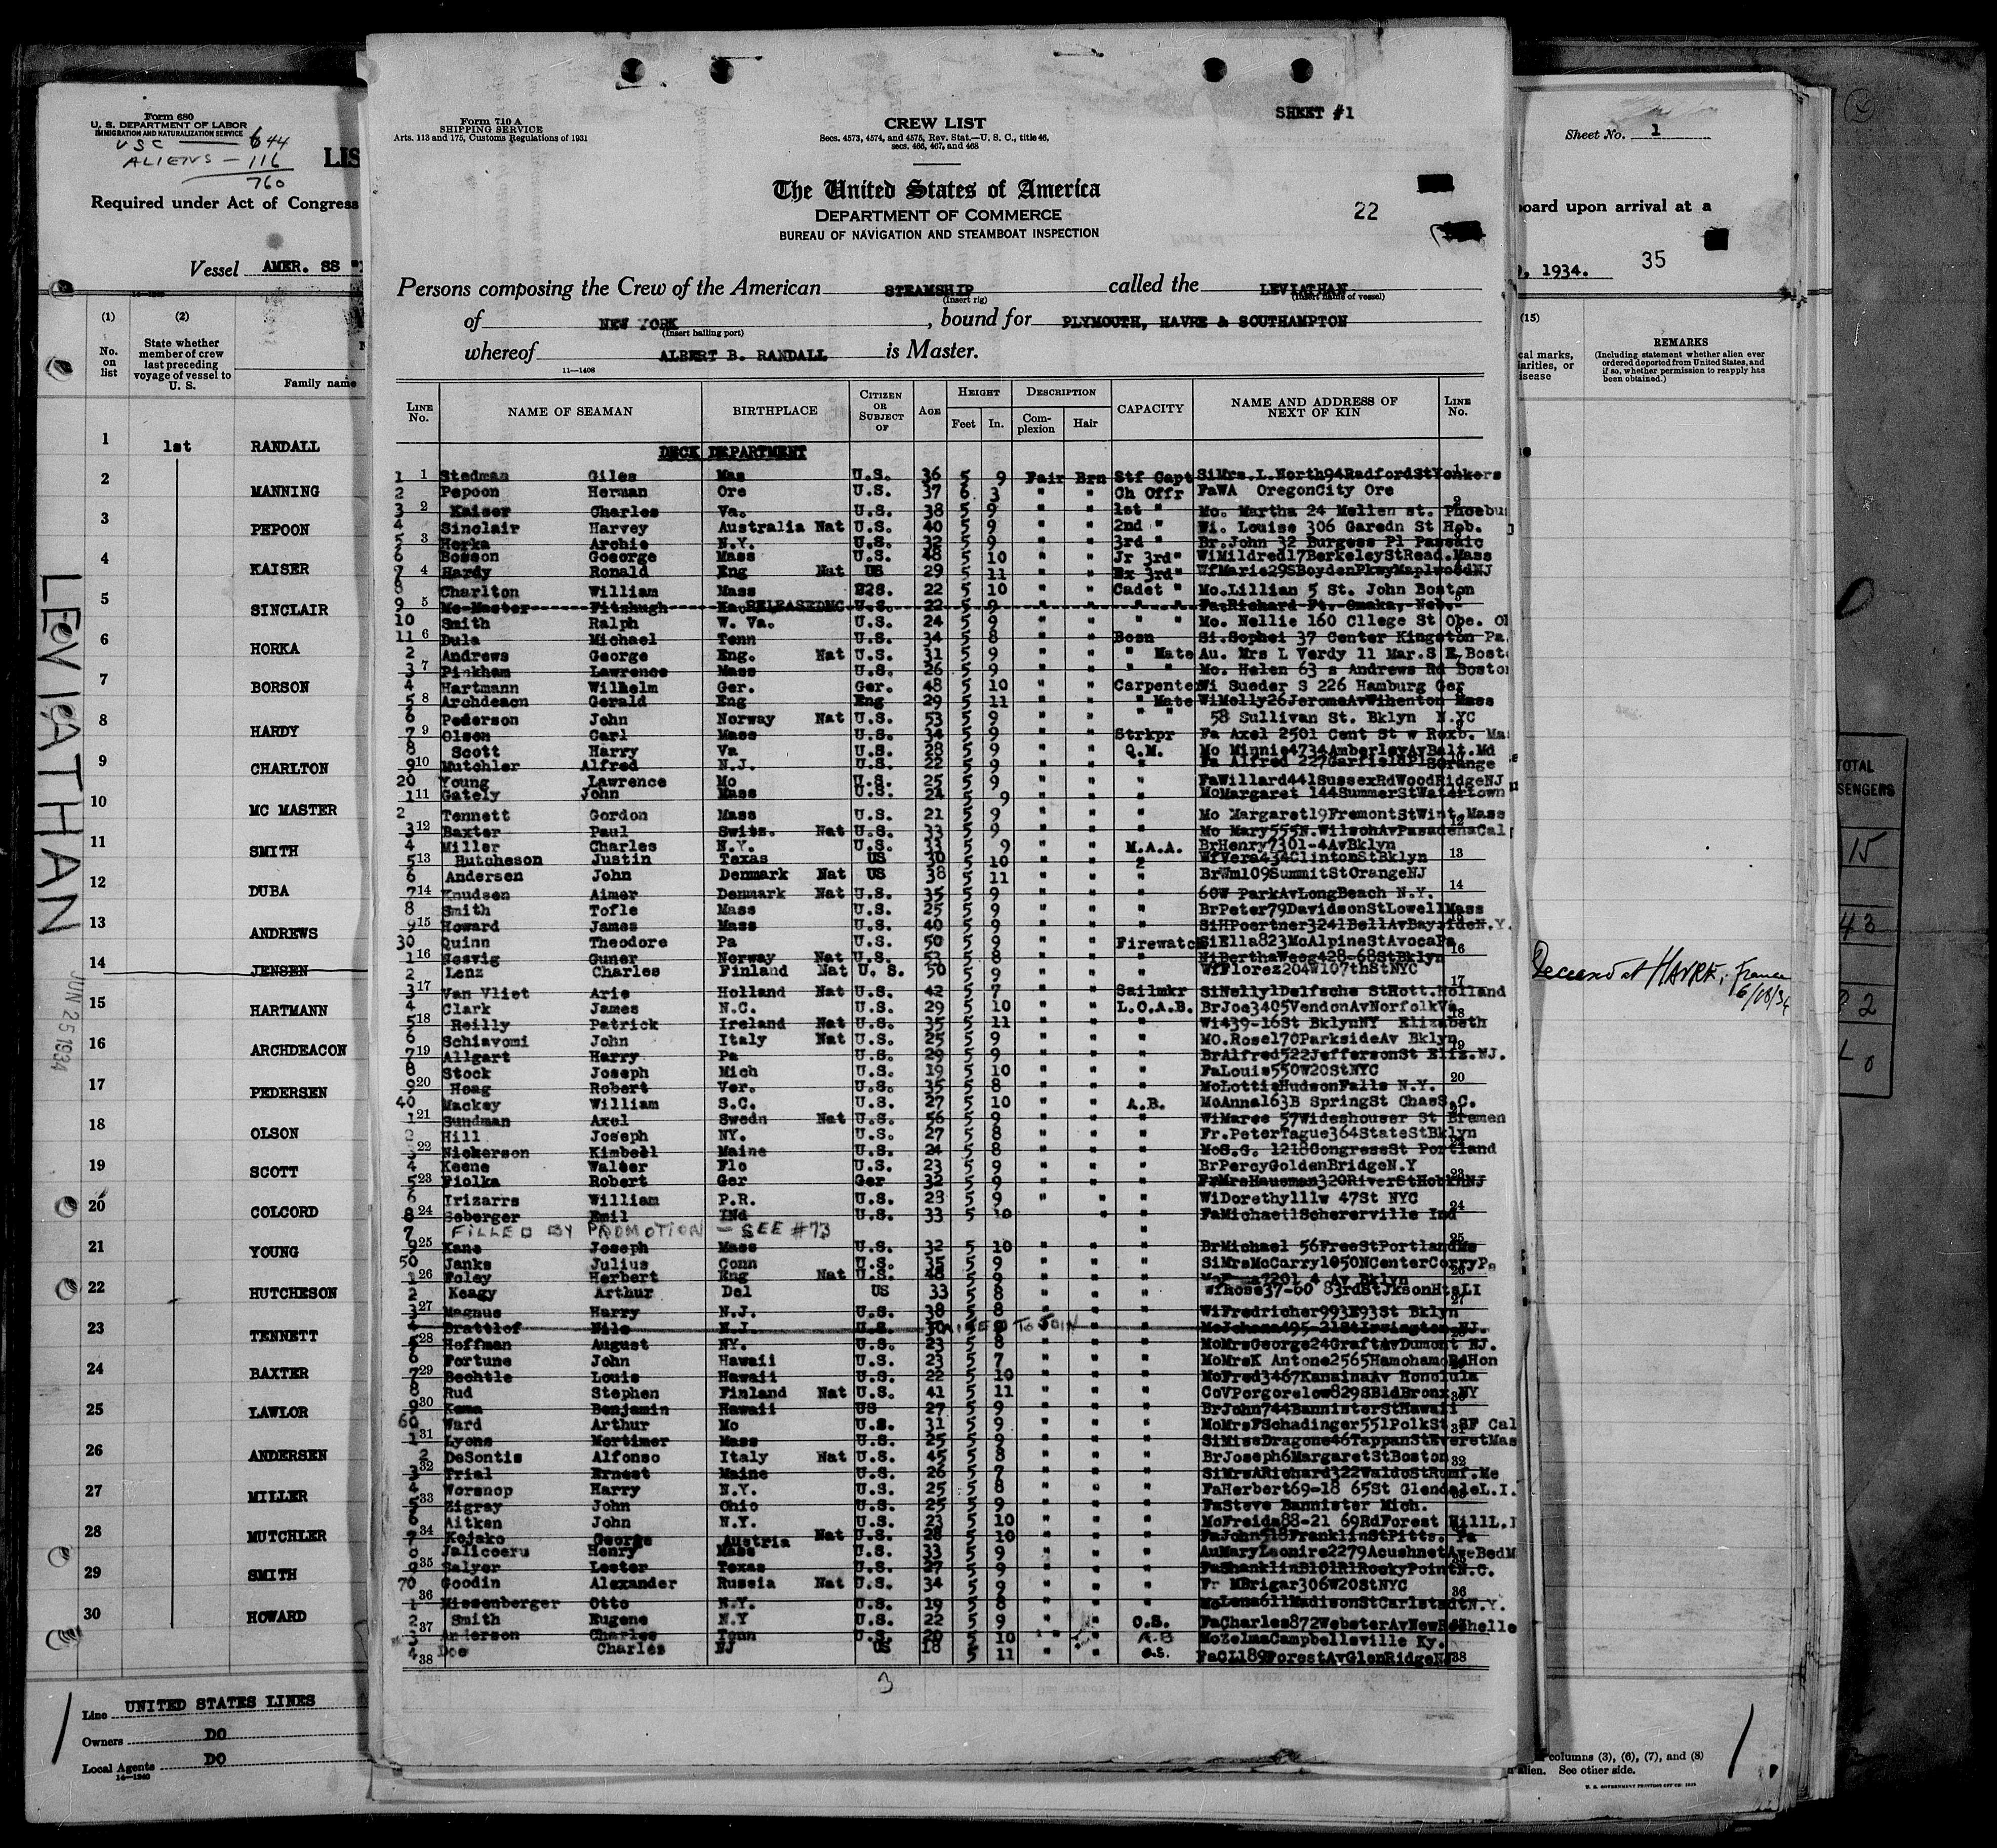 Form 680
U. S. DEPARTMENT OF LABOR
IMMIGRATION AND NATURALIZATION SERVICE
USC — 644
ALIENS — 116
760
LIS
Required under Act of Congress
Vessel AMER. SS "
(1) (2)
No. on list
State whether member of crew last preceding voyage of vessel to U. S.
Family name
1 1st RANDALL
2 MANNING
3 PEPOON
4 KAISER
5 SINCLAIR
6 HORKA
7 BORSON
8 HARDY
9 CHARLTON
10 MC MASTER
11 SMITH
12 DUBA
13 ANDREWS
14 JENSEN
15 HARTMANN
16 ARCHDEACON
17 PEDERSEN
18 OLSON
19 SCOTT
20 COLCORD
21 YOUNG
22 HUTCHESON
23 TENNETT
24 BAXTER
25 LAWLOR
26 ANDERSEN
27 MILLER
28 MUTCHLER
29 SMITH
30 HOWARD
LEVIATHAN
JUN 25 1934
Line UNITED STATES LINES
Owners DO
Local Agents DO
14—1240
Form 710 A
SHIPPING SERVICE
Arts. 113 and 175, Customs Regulations of 1931
CREW LIST
Secs. 4573, 4574, and 4575, Rev. Stat.—U. S. C., title 46,
secs. 466, 467, and 468
SHEET #1
The United States of America
DEPARTMENT OF COMMERCE
BUREAU OF NAVIGATION AND STEAMBOAT INSPECTION
22
Persons composing the Crew of the American STEAMSHIP called the LEVIATHAN
(Insert rig) (Insert name of vessel)
of NEW YORK, bound for PLYMOUTH, HAVRE & SOUTHAMPTON
(Insert hailing port)
whereof ALBERT B. RANDALL is Master.
11—1408
LINE No. NAME OF SEAMAN BIRTHPLACE CITIZEN OR SUBJECT OF AGE HEIGHT Feet In. DESCRIPTION Complexion Hair CAPACITY NAME AND ADDRESS OF NEXT OF KIN LINE No.
DECK DEPARTMENT
1 Stedman Giles Mas U.S. 36 5 9 Fair Brn Stf Capt SiMrs.L.North94RadfordStYonkers
2 Pepoon Herman Ore U.S. 37 6 3 " " Ch Offr FaWA OregonCity Ore
3 Kaiser Charles Va. U.S. 38 5 9 " " 1st " Mo. Martha 24 Mellen st. Phoebu
4 Sinclair Harvey Australia Nat U.S. 40 5 9 " " 2nd " Wi. Louise 306 Garedn St Hob.
5 Horka Archie N.Y. U.S. 32 5 9 " " 3rd " Br.John 32 Burgess Pl Passaic
6 Bosson Goeorge Mass U.S. 48 5 10 " " Jr 3rd" WiMildred17BerkeleyStRead.Mass
7 Hardy Ronald Eng Nat US 29 5 11 " " Ex 3rd" WfMarie29SBoydenPkwyMaplwoodNJ
8 Charlton William Mass U.S. 22 5 10 " " Cadet " Mo.Lillian 5 St. John Boston
9 Mc Master Fitzhugh RELEASED U.S. 22 5 9 " " " " Fa.Richard Ft. Omaka, Neb.
10 Smith Ralph W. Va. U.S. 24 5 9 " " " " Mo. Nellie 160 Cllege St Obe. O
11 Dula Michael Tenn U.S. 34 5 8 " " Bosn Si.Sophei 37 Center Kingston Pa.
2 Andrews George Eng. Nat U.S. 31 5 9 " " " Mate Au. Mrs L Verdy 11 Mar.S E Bost
3 Pinkham Lawrence Mass U.S. 26 5 9 " " " " Mo. Helen 63 s Andrews Rd Boston
4 Hartmann Wilhelm Ger. Ger. 48 5 10 " " Carpenter Wi Sueder S 226 Hamburg Ger
5 Archdeacn Gerald Eng Eng 29 5 11 " " " Mate WiMolly26JeromeAvWihenton Mass
6 Pederson John Norway Nat U.S. 53 5 9 " " " " 58 Sullivan St. Bklyn N.YC
7 Olson Carl Mass U.S. 34 5 9 " " Strkpr Fa Axel 2501 Cent St w Roxb. Ma
8 Scott Harry Va U.S. 28 5 9 " " Q.M. Mo Minnie4734AmberleyAvBalt.Md
9 Mutchler Alfred N.J. U.S. 22 5 9 " " " Fa Alfred 227GarfieldPl SOrange
20 Young Lawrence Mo U.S. 25 5 9 " " " FaWillard441SussexRdWoodRidgeNJ
1 Gately John Mass U.S. 24 5 9 " " " MoMargaret 144SummerStWatertown
2 Tennett Gordon Mass U.S. 21 5 9 " " " Mo Margaret19FremontStWint.Mass
3 Baxter Paul Switz. Nat U.S. 33 5 9 " " " Mo Mary555N.WilsonAvPasadenaCal
4 Miller Charles N.Y. U.S. 33 5 9 " " M.A.A. BrHenry7301-4AvBklyn
5 Hutcheson Justin Texas US 30 5 10 " " " WfVera434ClintonStBklyn
6 Andersen John Denmark Nat US 38 5 11 " " " BrWm109SummitStOrangeNJ
7 Knudsen Aimer Denmark Nat U.S. 35 5 9 " " " 60W ParkAvLongBeach N.Y.
8 Smith Tofle Mass U.S. 25 5 9 " " " BrPeter79DavidsonStLowellMass
9 Howard James Mass U.S. 40 5 9 " " " SiHPoertner3241BellAvBaysideN.Y.
30 Quinn Theodore Pa U.S. 50 5 9 " " Firewatch SiElla823McAlpineStAvocaPa
1 Nesvig Guner Norway Nat U.S. 53 5 8 " " " NiBerthaWeeg428-68StBklyn
2 Lenz Charles Finland Nat U. S. 50 5 9 " " " WfFlorez204W107thStNYC
3 Van Vliet Arie Holland Nat U.S. 42 5 7 " " Sailmkr SiNelly1Delfsche StRott.Holland
4 Clark James N.C. U.S. 29 5 10 " " L.O.A.B. BrJoe3405VendonAvNorfolkVa
5 Reilly Patrick Ireland Nat U.S. 35 5 11 " " " Wi439-16St BklynNY Elizabeth
6 Schiavomi John Italy Nat U.S. 25 5 9 " " " MO.Rose170ParksideAv Bklyn
7 Allgart Harry Pa U.S. 29 5 9 " " " BrAlfred522JeffersonSt Eliz.NJ.
8 Stock Joseph Mich U.S. 19 5 10 " " " FaLouis550W20StNYC
9 Hoag Robert Ver. U.S. 35 5 8 " " " MoLottieHudsonFalls N.Y.
40 Mackey William S.C. U.S. 27 5 10 " " A.B. MoAnna163B SpringSt ChasS.C.
1 Sundman Axel Swedn Nat U.S. 56 5 9 " " " WiMaree 57Wideshouser St Bremen
2 Hill Joseph NY. U.S. 27 5 8 " " " Fr.PeterTague364StateStBklyn
3 Nickerson Kimbell Maine U.S. 24 5 8 " " " MoS.G. 1218CongressSt Portland
4 Keene Walter Flo U.S. 23 5 9 " " " BrPercyGoldenBridgeN.Y
5 Fiolka Robert Ger Ger 32 5 9 " " " FrMrsHausman320RiverStHobknNJ
6 Irizarrs William P.R. U.S. 23 5 9 " " " WiDorethy111w 47St NYC
8 Seberger Emil INd U.S. 33 5 10 " " " FaMichaelSchererville Ind
7 FILLED BY PROMOTION — SEE #73 "
9 Kane Joseph Mass U.S. 32 5 10 " " " BrMichael 56FreeStPortlandMe
50 Janks Julius Conn U.S. 35 5 9 " " " SiMrsMcCarry1050NCenterCorryPa
1 Foley Herbert Eng Nat U.S. 48 5 9 " " " 7201 4 Av Bklyn
2 Keagy Arthur Del US 33 5 8 " " " WfRose37-60 83rdStJksonHtsLI
3 Magnus Harry N.J. U.S. 38 5 8 " " " WiFredricher993E93St Bklyn
4 Brattlof Nils N.J. U.S. 30 FAILED TO JOIN MoJohana495-21StIrvington NJ.
5 Hoffman August NY. U.S. 23 5 8 " " " MoMrsGeorge24GraftAvDumont NJ.
6 Fortune John Hawaii U.S. 23 5 7 " " " MoMrsK Antone2565HamohamoRdHon
7 Bechtle Louis Hawaii U.S. 22 5 10 " " " MoFred3467KanainaAv Honolula
8 Rud Stephen Finland Nat U.S. 41 5 11 " " " CoVPorgorelow829SBldBronx NY
9 Kema Benjamin Hawaii US 27 5 9 " " " BrJohn744BannisterStHawaii
60 Ward Arthur Mo U.S. 31 5 9 " " " MoMrsFSchadinger551PolkSt SF Cal
1 Lyons Mortimer Mass U.S. 25 5 9 " " " SiMissDragone46TappanStEveretMas
2 DeSontis Alfonso Italy Nat U.S. 45 5 8 " " " BrJoseph6MargaretStBoston
3 Trial Ernest Maine U.S. 26 5 7 " " " SiMrsARichard322WaldoStRumf.Me
4 Worsnop Harry N.Y. U.S. 25 5 8 " " " FaHerbert69-18 65St GlendaleL.I.
5 Zigray John Ohio U.S. 25 5 9 " " " FaSteve Bannister Mich.
6 Aitken John N.Y. U.S. 23 5 10 " " " MoFreida88-21 69RdForest HillL.I
7 Kojsko George Austria Nat U.S. 28 5 10 " " " FaJohn518FranklinStPitts. Pa
8 Jalicoeru Henry Mass U.S. 33 5 9 " " " AuMaryLeonire2279AcushnetAveBedM
9 Salyer Lester Texas U.S. 27 5 9 " " " FaShanklinB101R1RockyPointN.C.
70 Goodin Alexander Russia Nat U.S. 34 5 9 " " " Fr MBrigar306W20StNYC
1 Miesenberger Otto N.Y. U.S. 19 5 8 " " " MoLena611MadisonStCarlstadtN.Y.
2 Smith Eugene N.Y U.S. 22 5 9 " " O.S. FaCharles872WebsterAvNewRochelle
3 Anderson Charles Tenn U.S. 20 5 10 " " A.B MoZelmaCampbellsville Ky.
4 Doe Charles NJ US 18 5 11 " " o.s. FaCL189ForestAvGlenRidgeNJ
38
3
Sheet No. 1
board upon arrival at a
, 1934. 35
(15)
cal marks,
larities, or
isease
REMARKS
(Including statement whether alien ever ordered deported from United States, and if so, whether permission to reapply has been obtained.)
Deceased at HAVRE, France
6/18/34
TOTAL
SENGERS
15
43
2
columns (3), (6), (7), and (8)
alien. See other side.
U. S. GOVERNMENT PRINTING OFFICE
1.